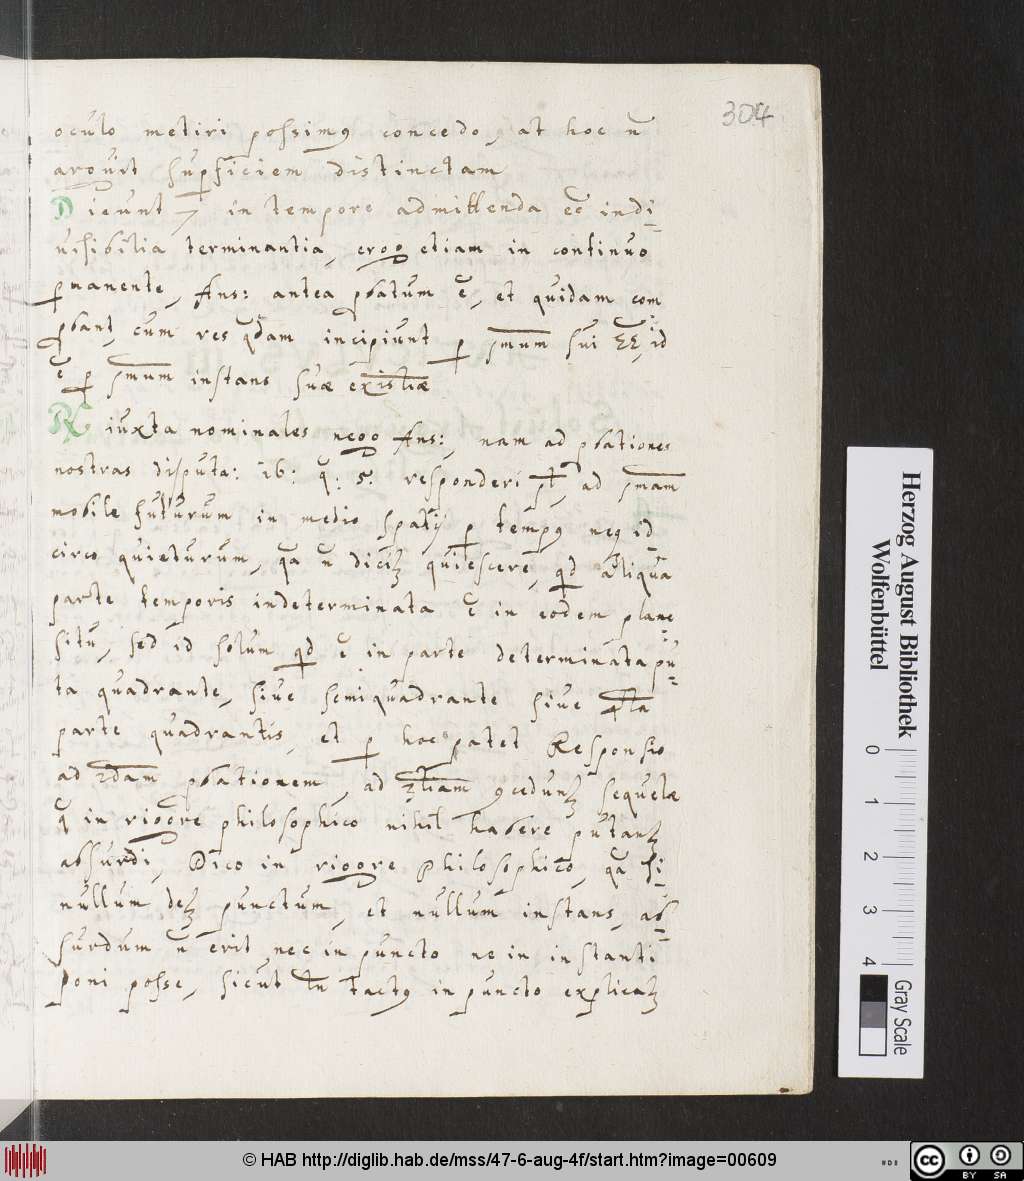 304
oculo metiri possimꝯ concedo, at hoc ñ
arguit suꝑficiem distinctam
Dicunt 7 in tempore admittenda eẽ indi-
uisibilia terminantia, ergo etiam in continuo
ꝑmanente, Ans: antea ꝓbatum ẽ, et quidam com
ꝓbant, cum res q̃dam incipiunt ꝑ pmum sui id
ẽ ꝑ pmum instans suæ existiæ
R iuxta nominales nego Ans:, nam ad ꝓbationes
nostras disputa: 16: q̃: 5: responderi pt̃, ad pmam
mobile futurum in medio spatij ꝑ tempꝯ neq id-
circo quieturum, q̃a ñ dicit̃ quiescere, qd aliqua
parte temporis indeterminata ẽ in eodem plane
situ, sed id solum qd ẽ in parte determinata pu=
ta quadrante, siue semiquadrante siue 4ta
parte quadrantis, et ꝑ hoc patet Responsio
ad 2dam ꝓbationem, ad 3tiam ꝯcedunt sequelæ
q̃ in rigore philosophico nihil habere putant
absurdi, Dico in rigore Philosophico, q̃a si-
nullum det punctum, et nullum instans, ab-
surdum ñ erit, nec in puncto ne in instanti
poni posse, sicut tñ tactꝯ in puncto explicat
Herzog August Bibliothek
Wolfenbüttel
0 1 2 3 4
Gray Scale
© HAB http://diglib.hab.de/mss/47-6-aug-4f/start.htm?image=00609
cc BY SA